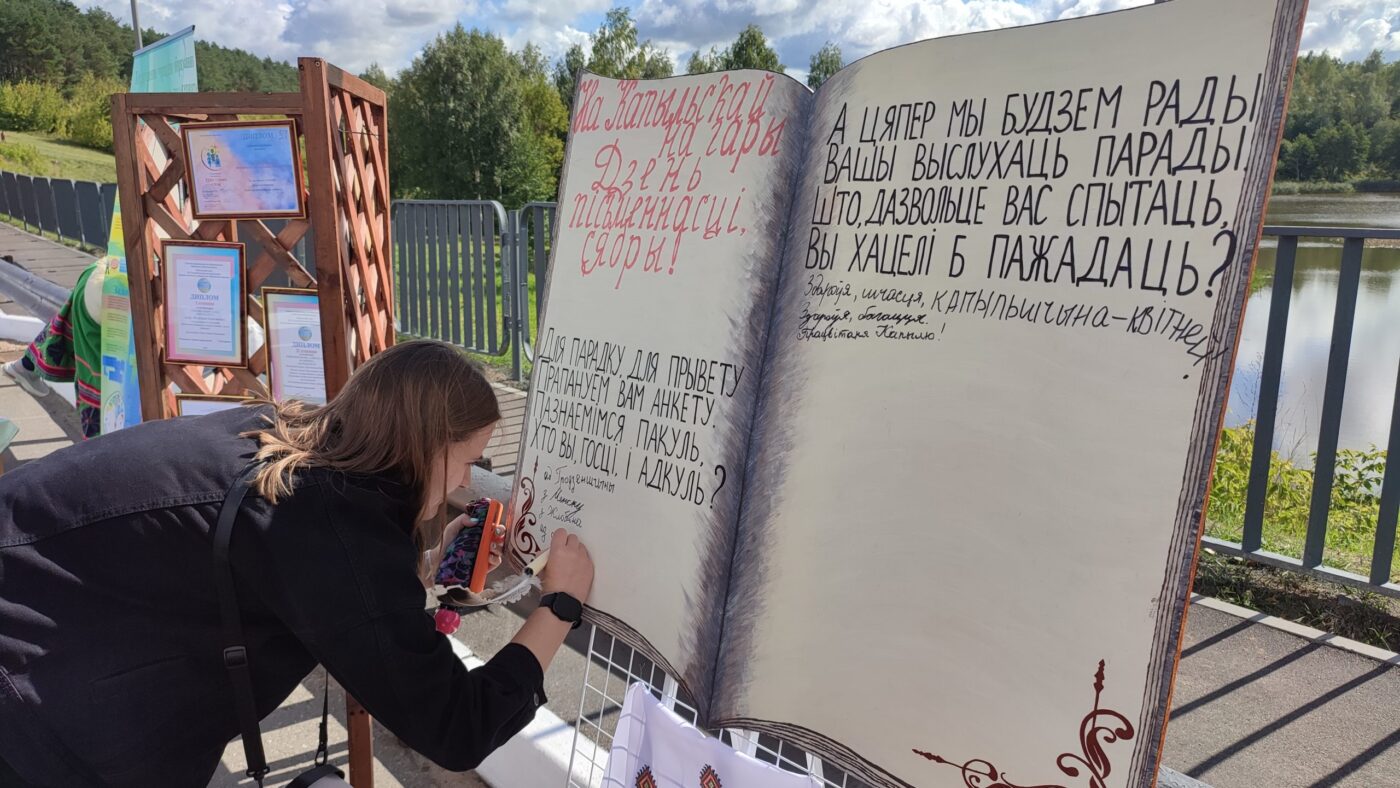 ДИПЛОМ
ДИПЛОМ
ДИПЛОМ
На Капыльскай
на гары
Дзень
пісьменнасці,
сябры!
Для парадку, для прывету
Прапануем вам анкету.
Пазнаемімся пакуль,
Хто вы, госці, і адкуль?
ад Гродзеншчыны
з Мінску
з Жлобіна
А цяпер мы будзем рады
Вашы выслухаць парады.
Што, дазвольце вас спытаць,
Вы хацелі б пажадаць?
Здароўя, шчасця, Капыльшчына-квітней
Здароўя, багацця.
Працвітаня Капылю!